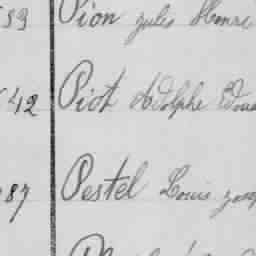 53 Pion Jules Henri
42 Piot Adolphe
87 Pestel Louis